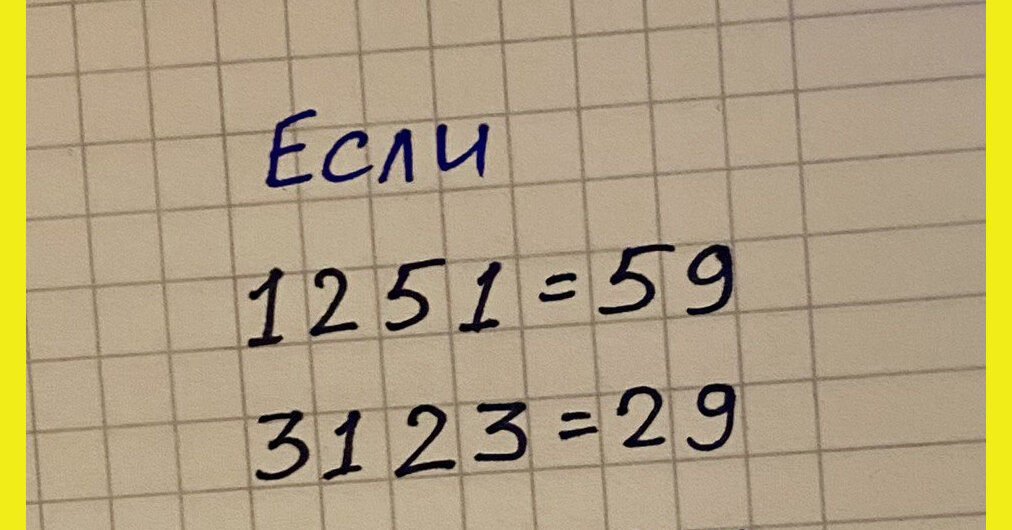 Если
1251=59
3123=29